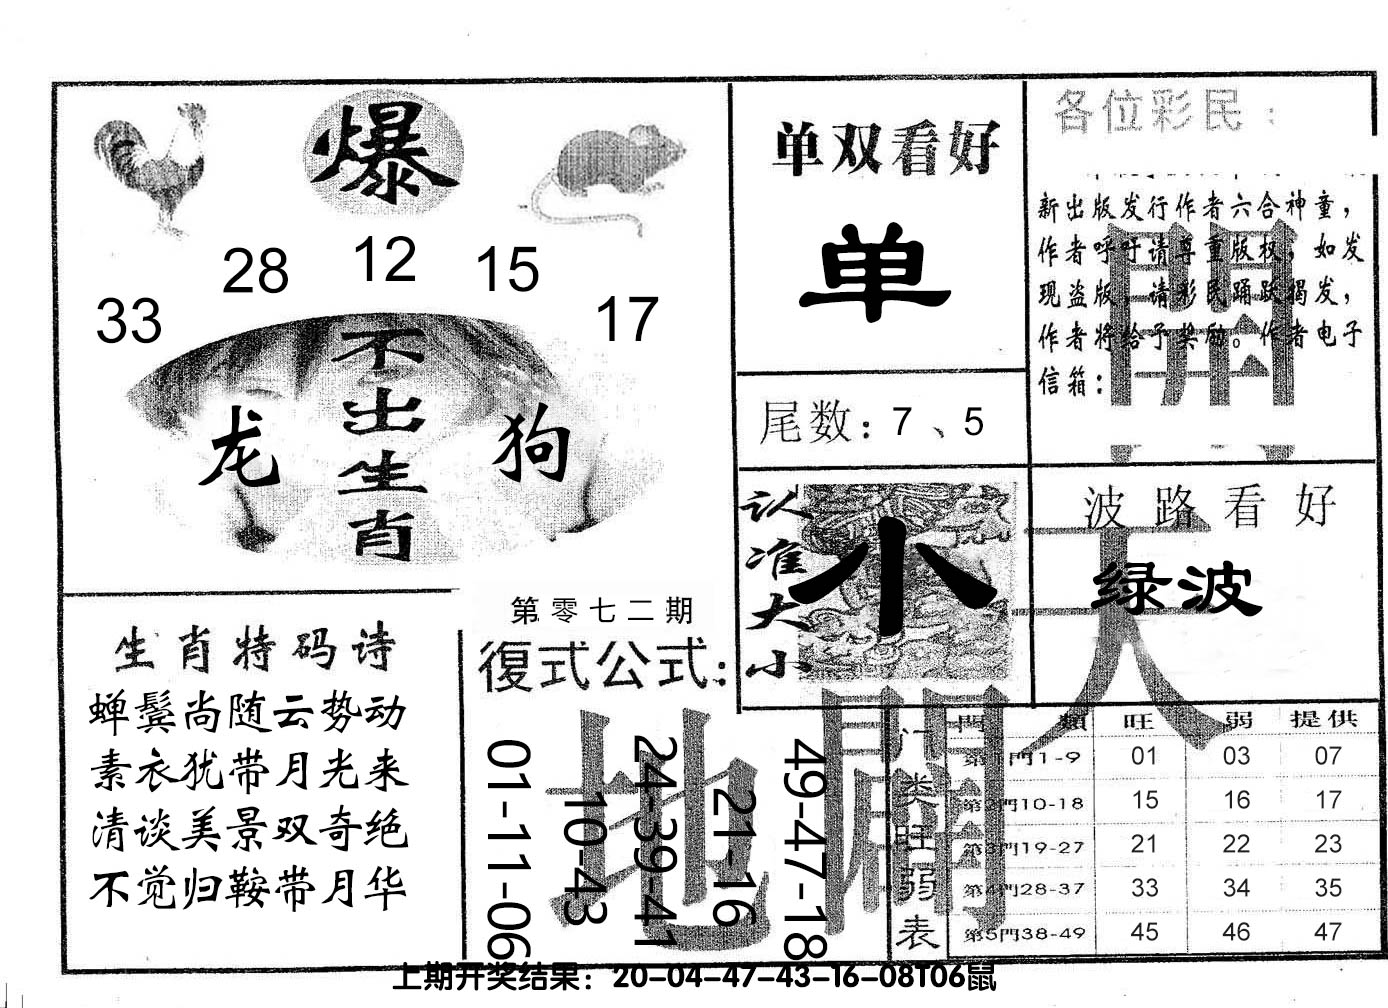 爆
33 28 12 15 17
不出生肖
龙 狗
单双看好
单
尾数：7、5
各位彩民：
新出版发行作者六合神童，
作者呼吁请尊重版权，如发
现盗版，请彩民踊跃揭发，
作者将给予奖励。作者电子
信箱：
開
认准大小
小
波路看好
绿波
天
生肖特码诗
蝉鬓尚随云势动
素衣犹带月光来
清谈美景双奇绝
不觉归鞍带月华
第零七二期
復式公式：
01-11-06
10-43
24-39-41
21-16
49-47-18
地
門类旺弱表
門類 旺 弱 提供
第1門1-9 01 03 07
第2門10-18 15 16 17
第3門19-27 21 22 23
第4門28-37 33 34 35
第5門38-49 45 46 47
上期开奖结果：20-04-47-43-16-08T06鼠